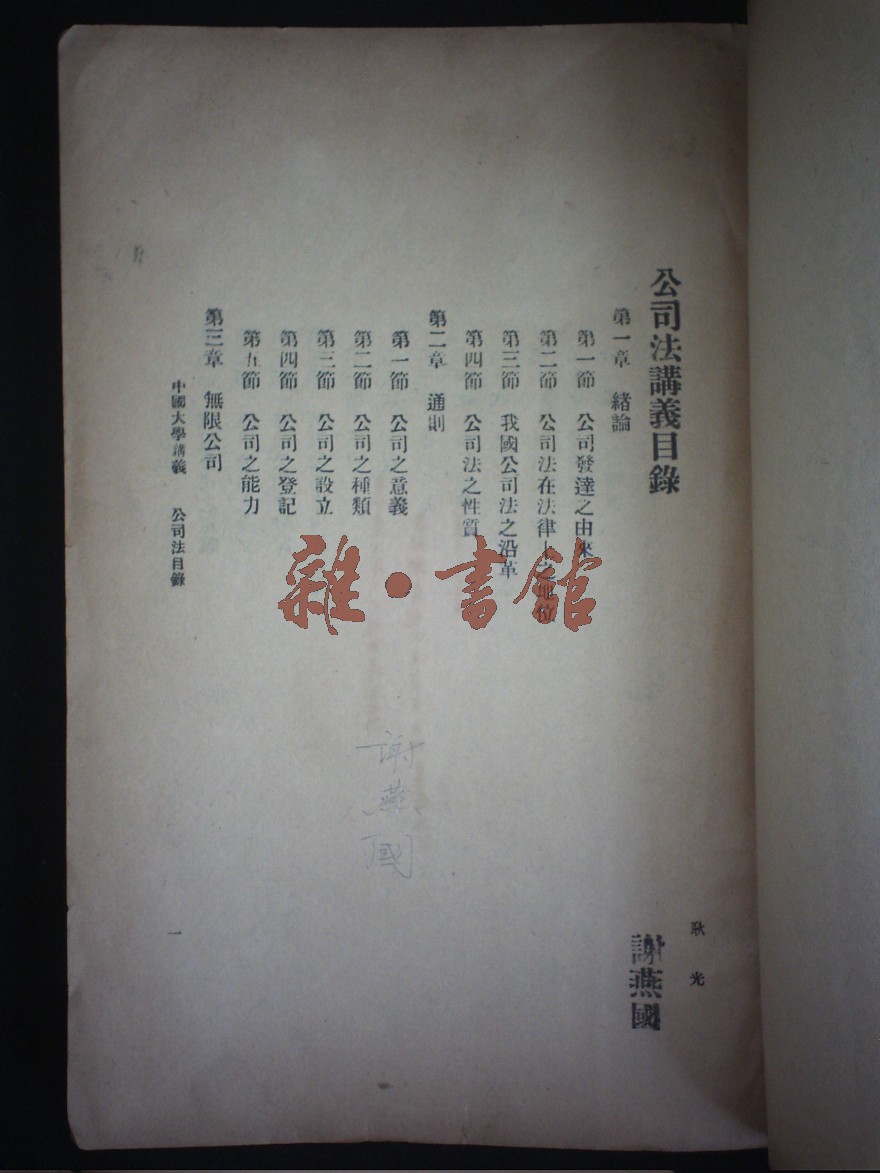 公司法講義目錄
耿光
謝燕國
第一章 緒論
第一節 公司發達之由來
第二節 公司法在法律上之地位
第三節 我國公司法之沿革
第四節 公司法之性質
第二章 通則
第一節 公司之意義
第二節 公司之種類
第三節 公司之設立
第四節 公司之登記
第五節 公司之能力
第三章 無限公司
中國大學講義 公司法目錄
一
謝燕國
雜·書館